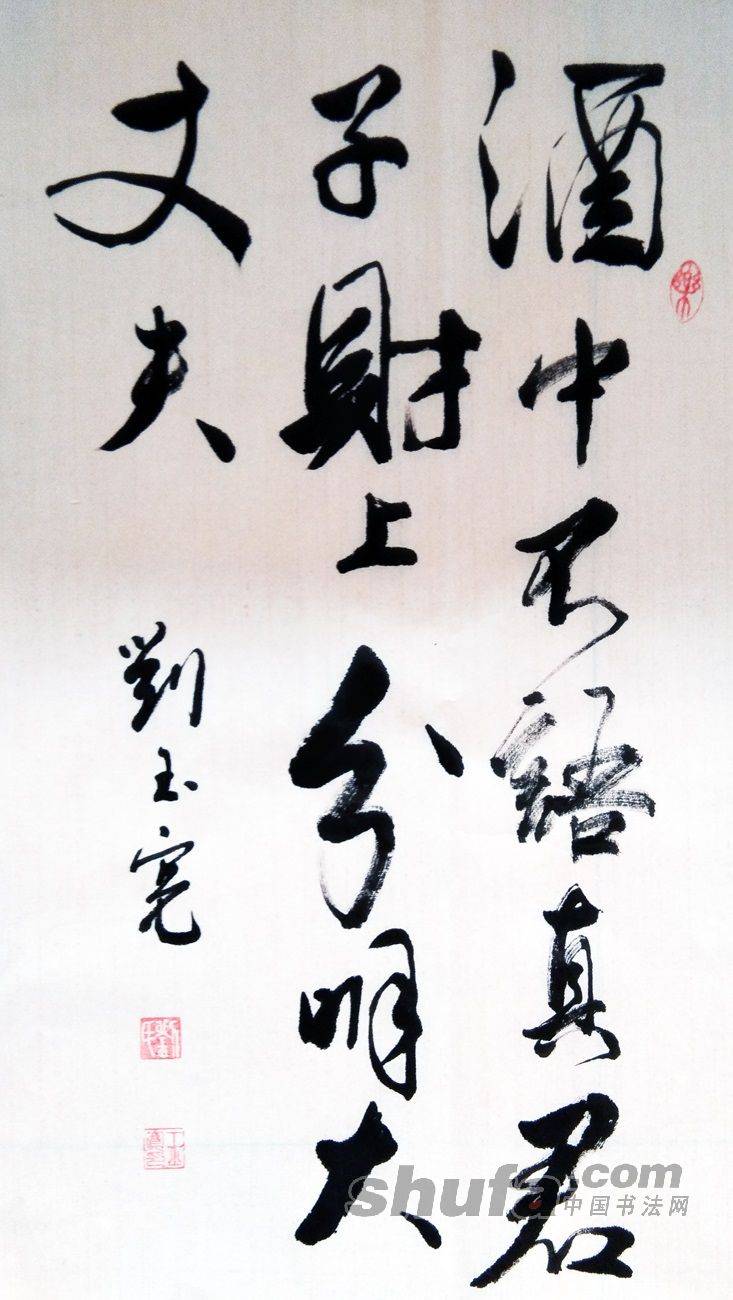 酒中不語真君
子財上分明大
丈夫
劉玉亮
shufa.com
中国书法网